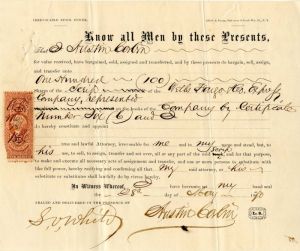 IRREVOCABLE STOCK POWER.
Know all Men by these Presents,
That I Austin Corbin
for value received, have bargained, sold, assigned and transferred, and by these presents do bargain, sell, assign, and transfer unto
One Hundred (100)
Shares of the Scrip Wells Fargo & Co. Express
Company, represented
on the books of the Company by Certificate
Number Six (6) and I
do hereby constitute and appoint
true and lawful Attorney, irrevocable for me and my name and stead, but to
his use, to sell, to assign, transfer and set over, all or any part of the said Scrip and for that purpose, to make and execute all necessary acts of assignment and transfer, and one or more persons to substitute with like full power, hereby ratifying and confirming all that my said attorney, or his
substitute or substitutes shall lawfully do by virtue hereof.
In Witness Whereof, I have hereunto set my hand
28th day of 1870
SEALED AND DELIVERED IN THE PRESENCE OF
S.V. White
Austin Corbin
L. S.